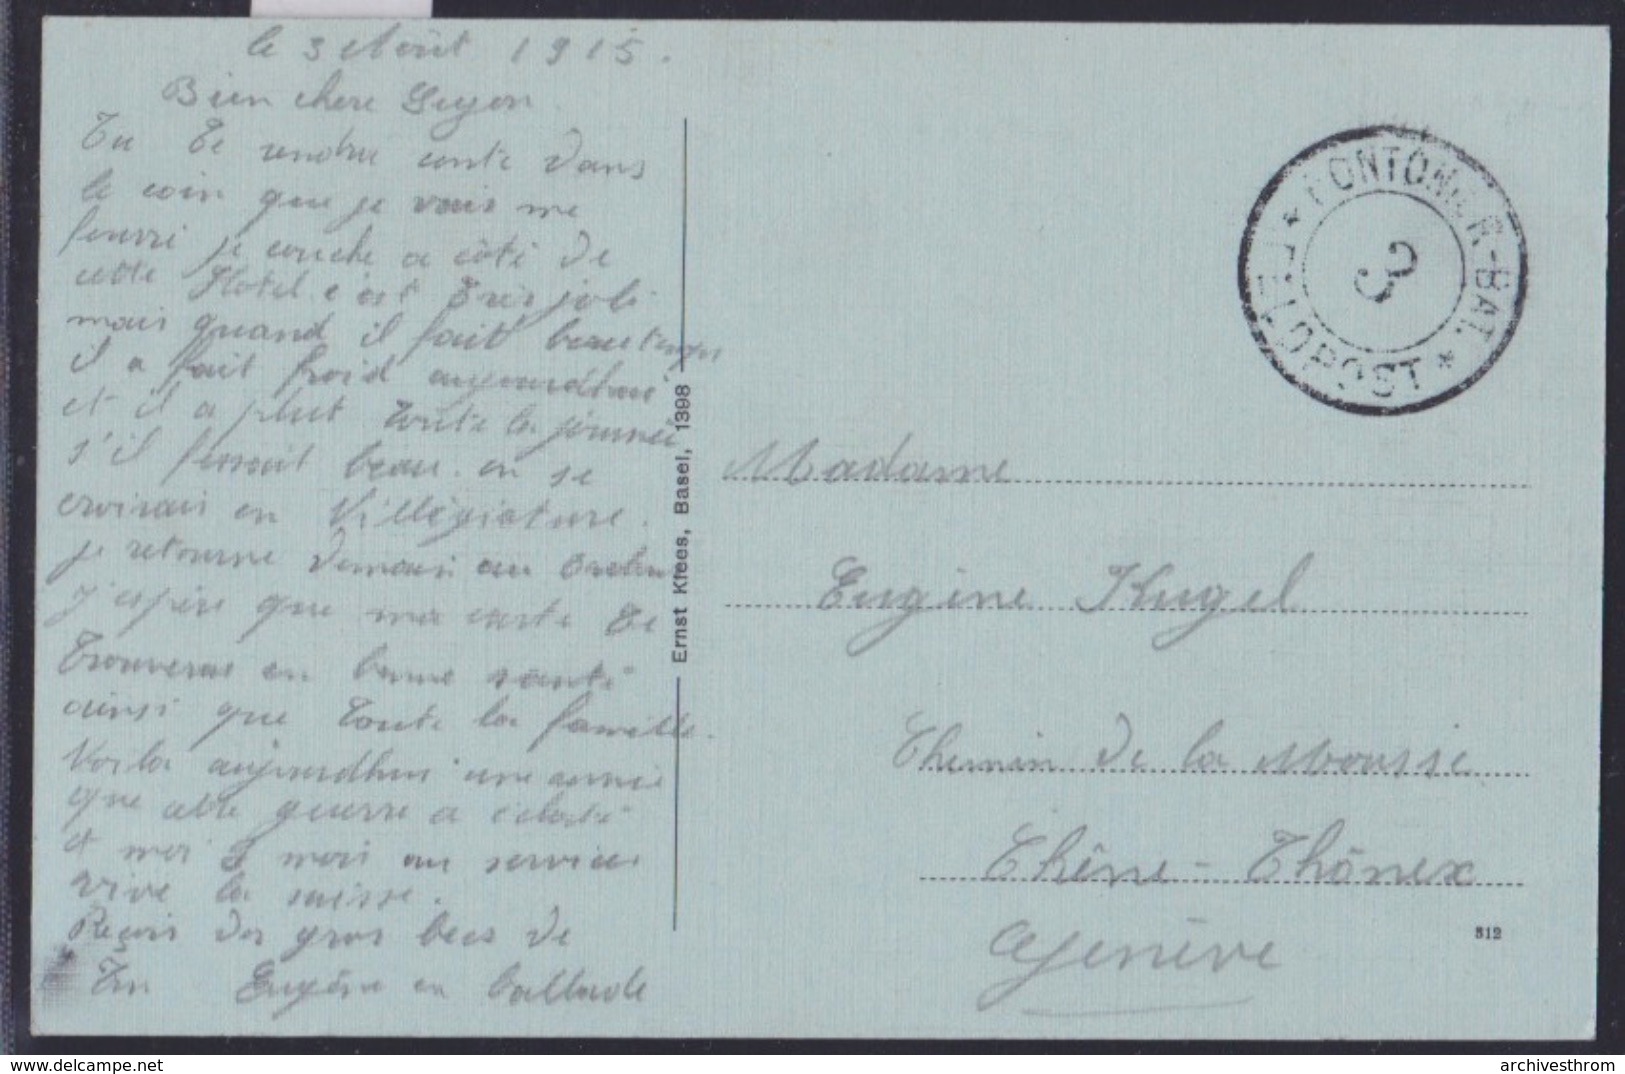 le 3 Août 1915.
Bien chere
Tu te rendra conte dans
le coin que je vais me
fourré je couche a côté de
cette Hotel c'est tres joli
mais quand il fait beau temps
il a fait froid aujourdhui
et il a plut toute la journée
s'il fesait beau on se
croirais en Villégiature.
je retourne demain au
j'espère que ma carte te
trouveras en bonne santé
ainsi que toute la famille.
Voila aujourdhui une année
que cette guerre a éclaté
et moi mois au service
vive la suisse.
Reçois des gros becs de
Ton Eugène en ballade
Ernst Klees, Basel, 1398
* PONTONIER-BAT. *
FELDPOST
3
Madame
Eugène Kugel
Chemin de la Mousse
Chêne-Thônex
Genève
312
archivesthrom
delcampe.net